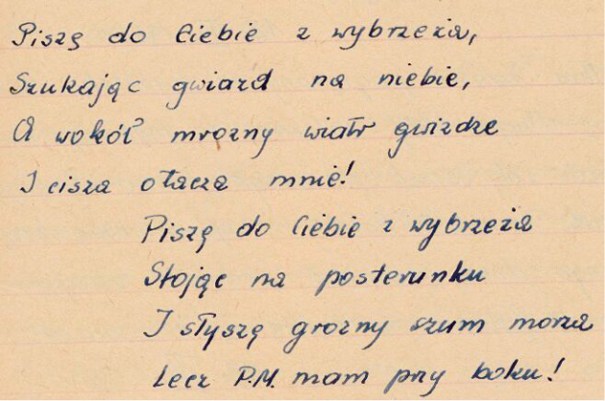 Piszę do Ciebie z wybrzeża,
Szukając gwiazd na niebie,
A wokół mroźny wiatr gwizdze
I cisza otacza mnie!
Piszę do Ciebie z wybrzeża
Stojąc na posterunku
I słyszę groźny szum morza
Lecz P.M. mam przy boku!